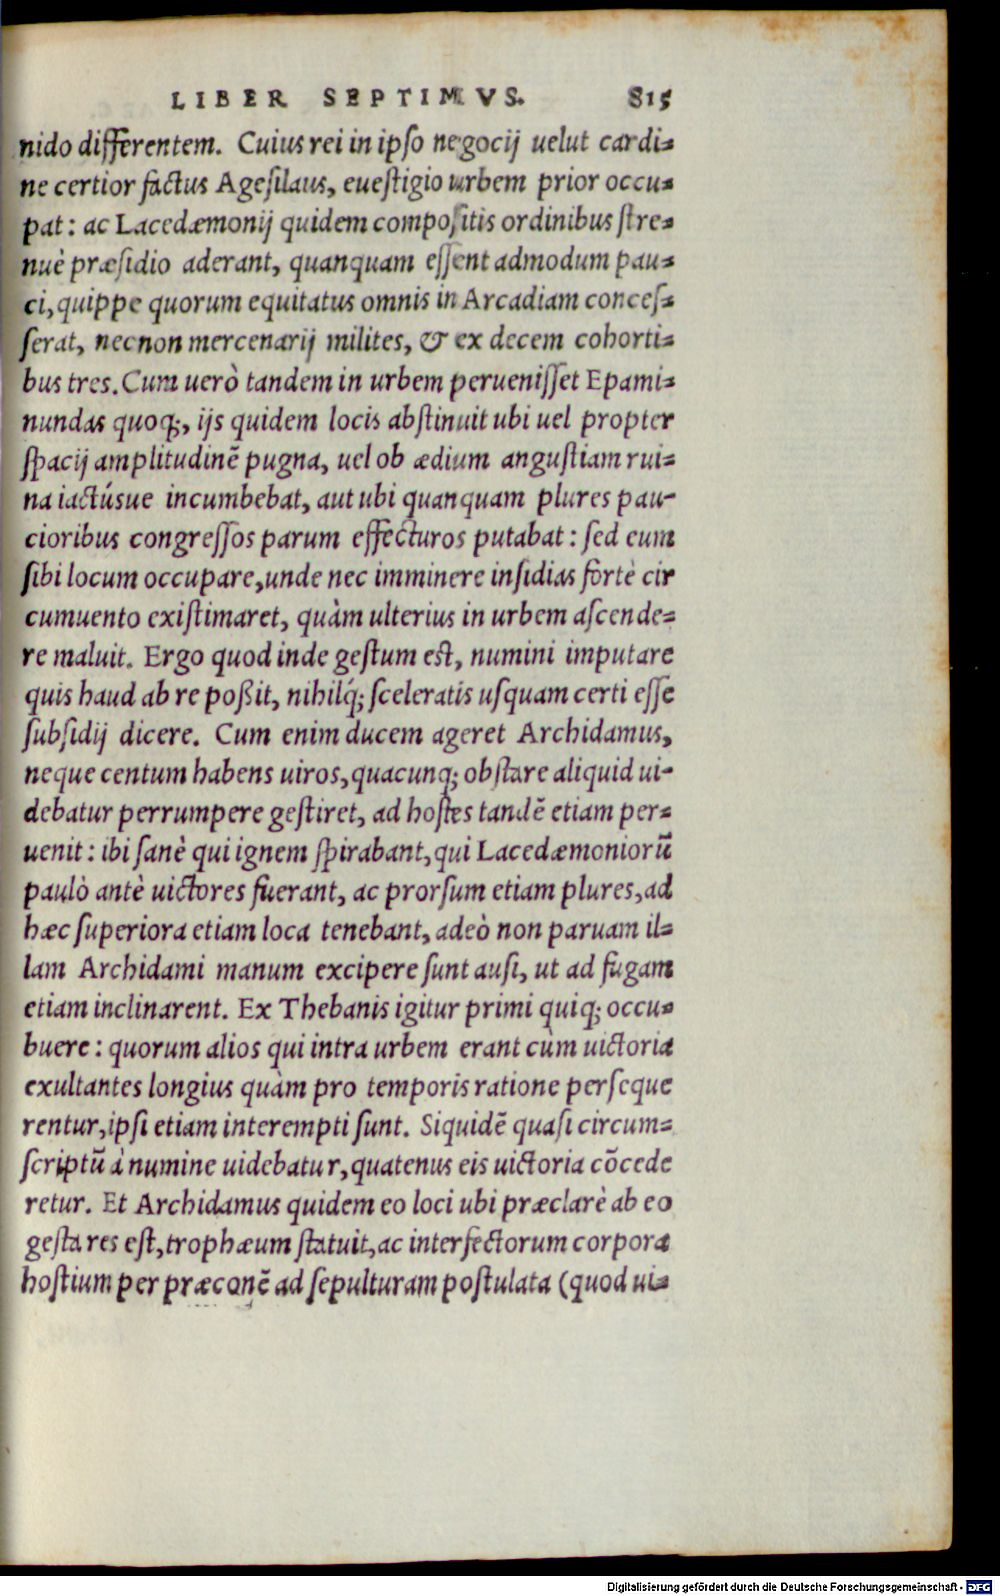 LIBER SEPTIMVS. 815
nido differentem. Cuius rei in ipso negocij uelut cardi-
ne certior factus Agesilaus, euestigio urbem prior occu-
pat: ac Lacedæmonij quidem compositis ordinibus stre-
nuè præsidio aderant, quanquam essent admodum pau-
ci, quippe quorum equitatus omnis in Arcadiam conces-
serat, necnon mercenarij milites, & ex decem cohorti-
bus tres. Cum uerò tandem in urbem peruenisset Epami-
nundas quoq;, ijs quidem locis abstinuit ubi uel propter
spacij amplitudinē pugna, uel ob ædium angustiam rui-
na iactúsue incumbebat, aut ubi quanquam plures pau-
cioribus congressos parum effecturos putabat: sed eum
sibi locum occupare, unde nec imminere insidias fortè cir
cumuento existimaret, quàm ulterius in urbem ascende-
re maluit. Ergo quod inde gestum est, numini imputare
quis haud ab re poßit, nihilq́; sceleratis usquam certi esse
subsidij dicere. Cum enim ducem ageret Archidamus,
neque centum habens uiros, quacunq; obstare aliquid ui-
debatur perrumpere gestiret, ad hostes tandē etiam per-
uenit: ibi sanè qui ignem spirabant, qui Lacedæmoniorū
paulò antè uictores fuerant, ac prorsum etiam plures, ad
hæc superiora etiam loca tenebant, adeò non paruam il-
lam Archidami manum excipere sunt ausi, ut ad fugam
etiam inclinarent. Ex Thebanis igitur primi quiq; occu-
buere: quorum alios qui intra urbem erant cùm uictoria
exultantes longius quàm pro temporis ratione perseque
rentur, ipsi etiam interempti sunt. Siquidē quasi circum-
scriptū à numine uidebatur, quatenus eis uictoria cōcede
retur. Et Archidamus quidem eo loci ubi præclarè ab eo
gesta res est, trophæum statuit, ac interfectorum corpora
hostium per præconē ad sepulturam postulata (quod ui-
Digitalisierung gefördert durch die Deutsche Forschungsgemeinschaft - DFG